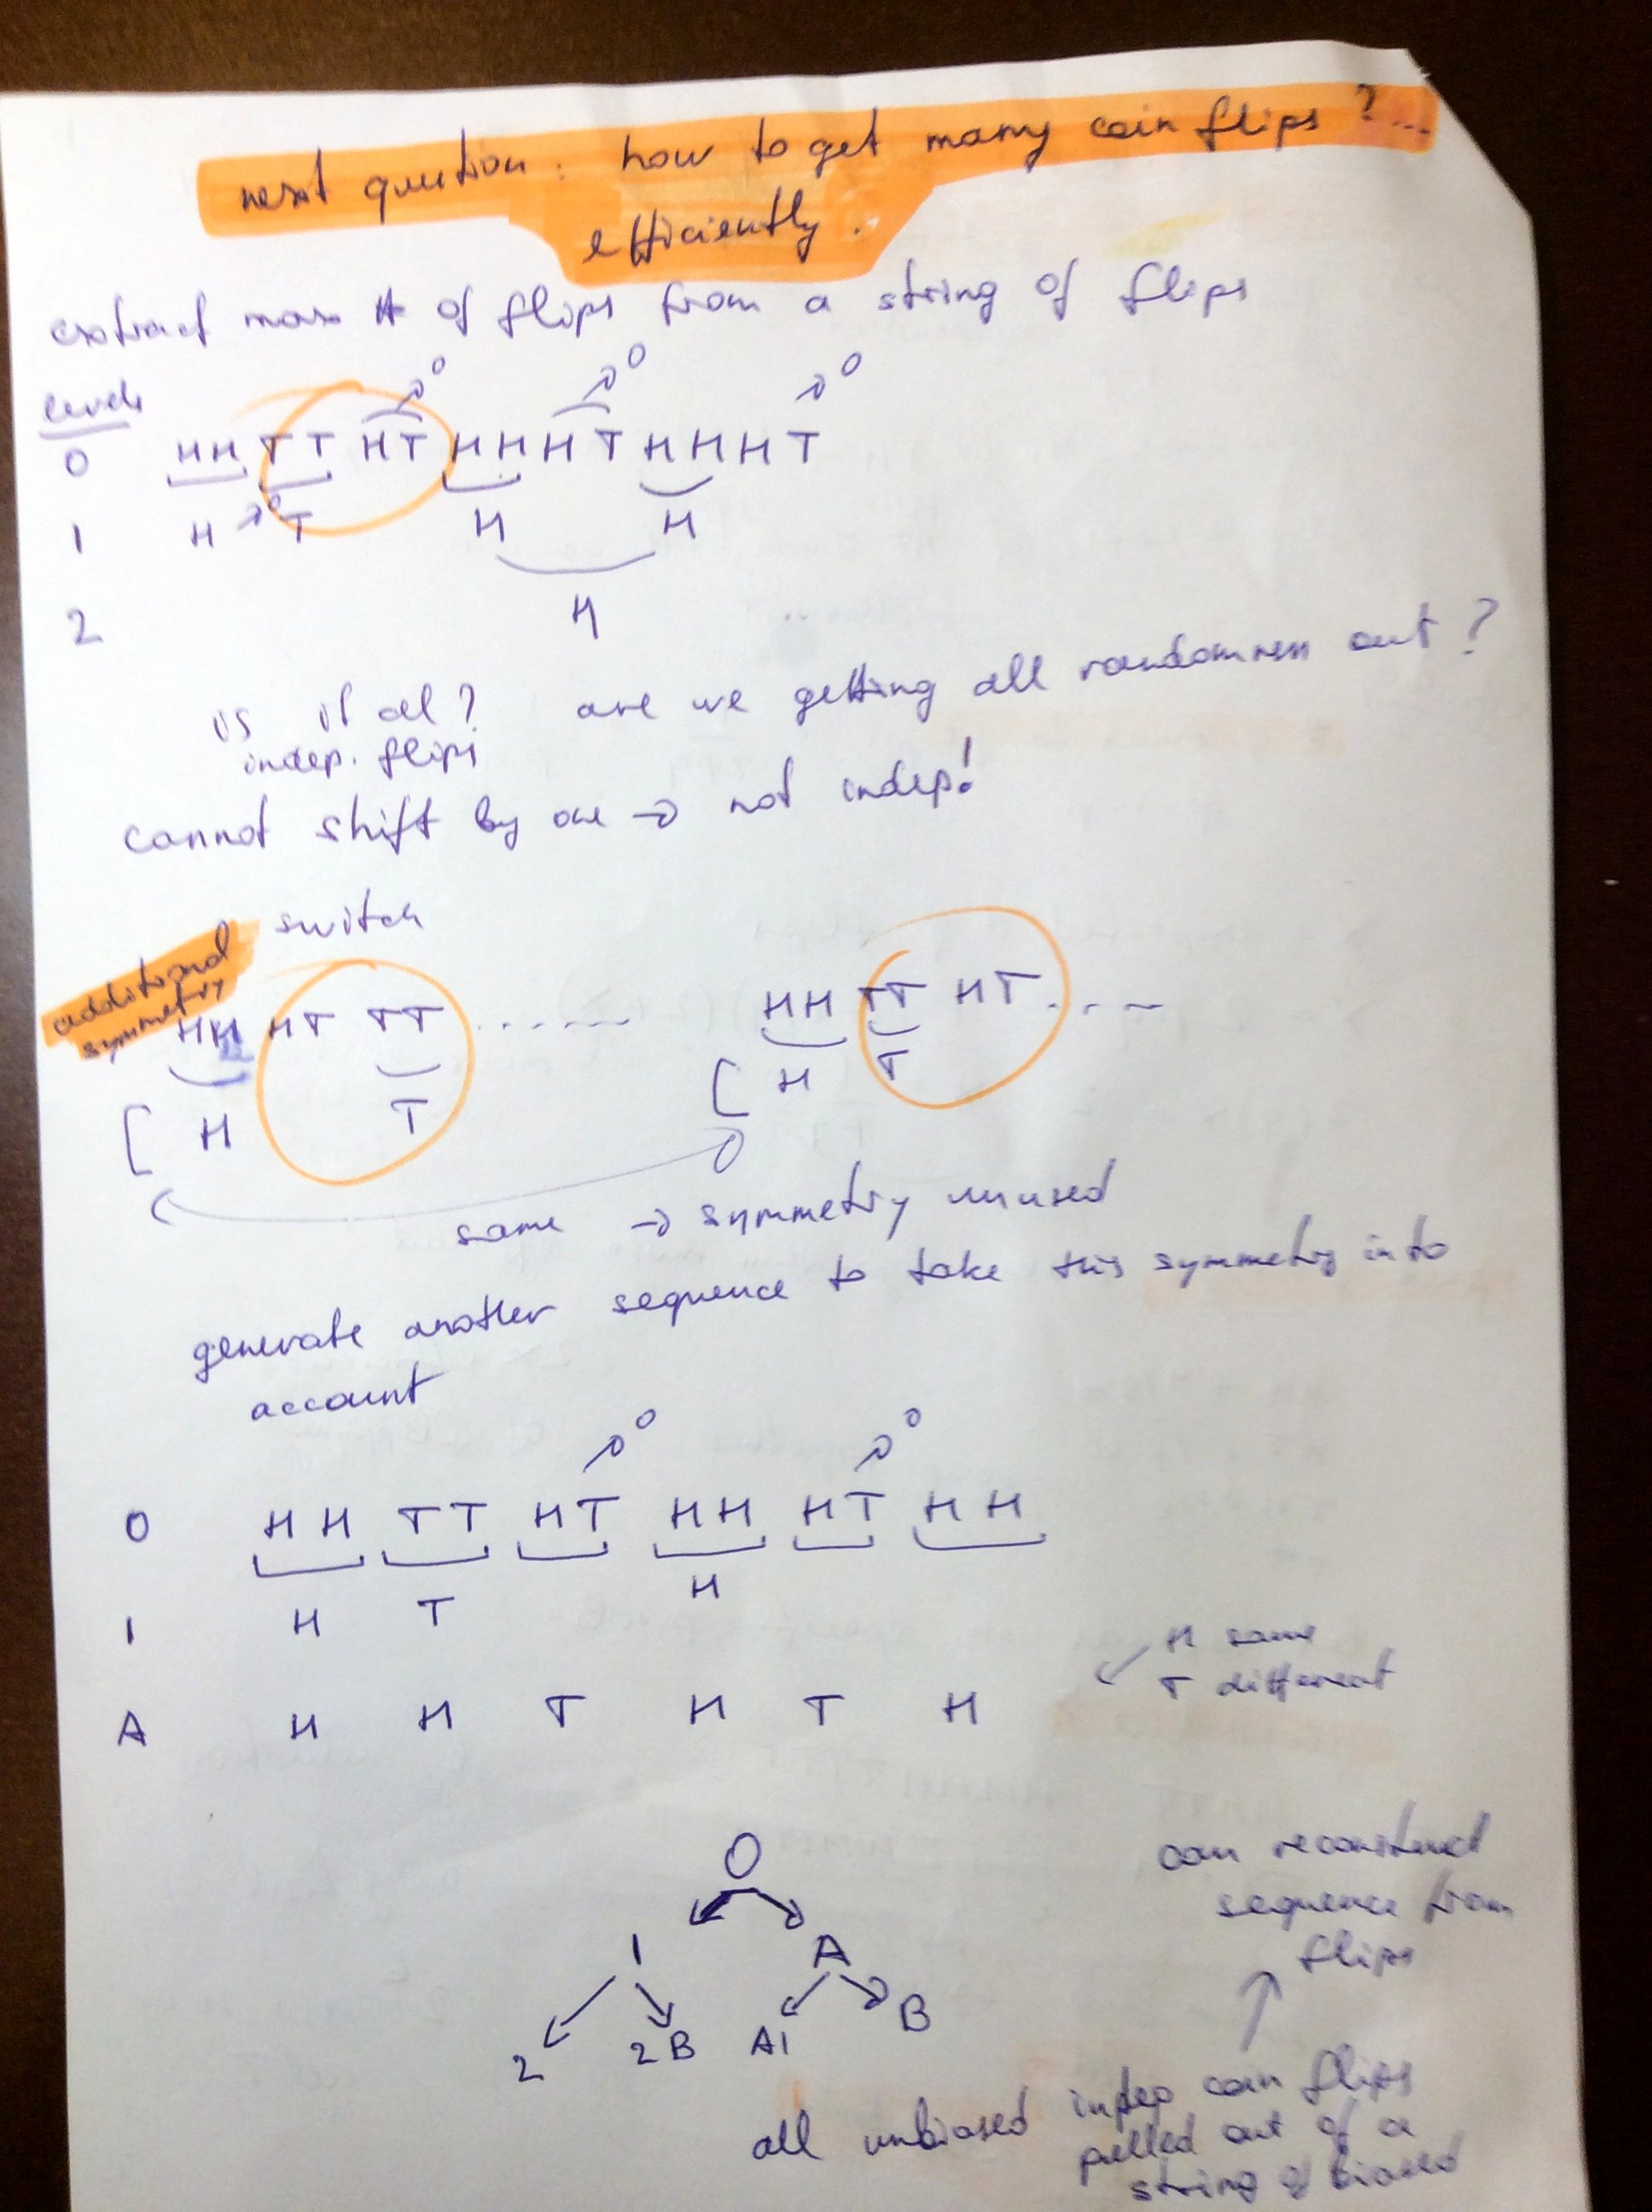 next question : how to get many coin flips ?...
efficiently.
extract max # of flips from a string of flips
levels
0 HH TT HT HH HT HH HT
0 0 0
1 H 0 T H H
2 H
is it all? are we getting all randomness out ?
indep. flips
cannot shift by one → not indep!
switch
additional
symmetry
HH HT TT ....... HH TT HT ....
[ H T [ H T
same → symmetry unused
generate another sequence to take this symmetry into
account
0 0
0 HH TT HT HH HT HH
1 H T H
H same
A H H T H T H
T different
0
1 A
2 2B A1 B
can reconstruct
sequence from
flips
all unbiased indep coin flips
pulled out of a
string of biased